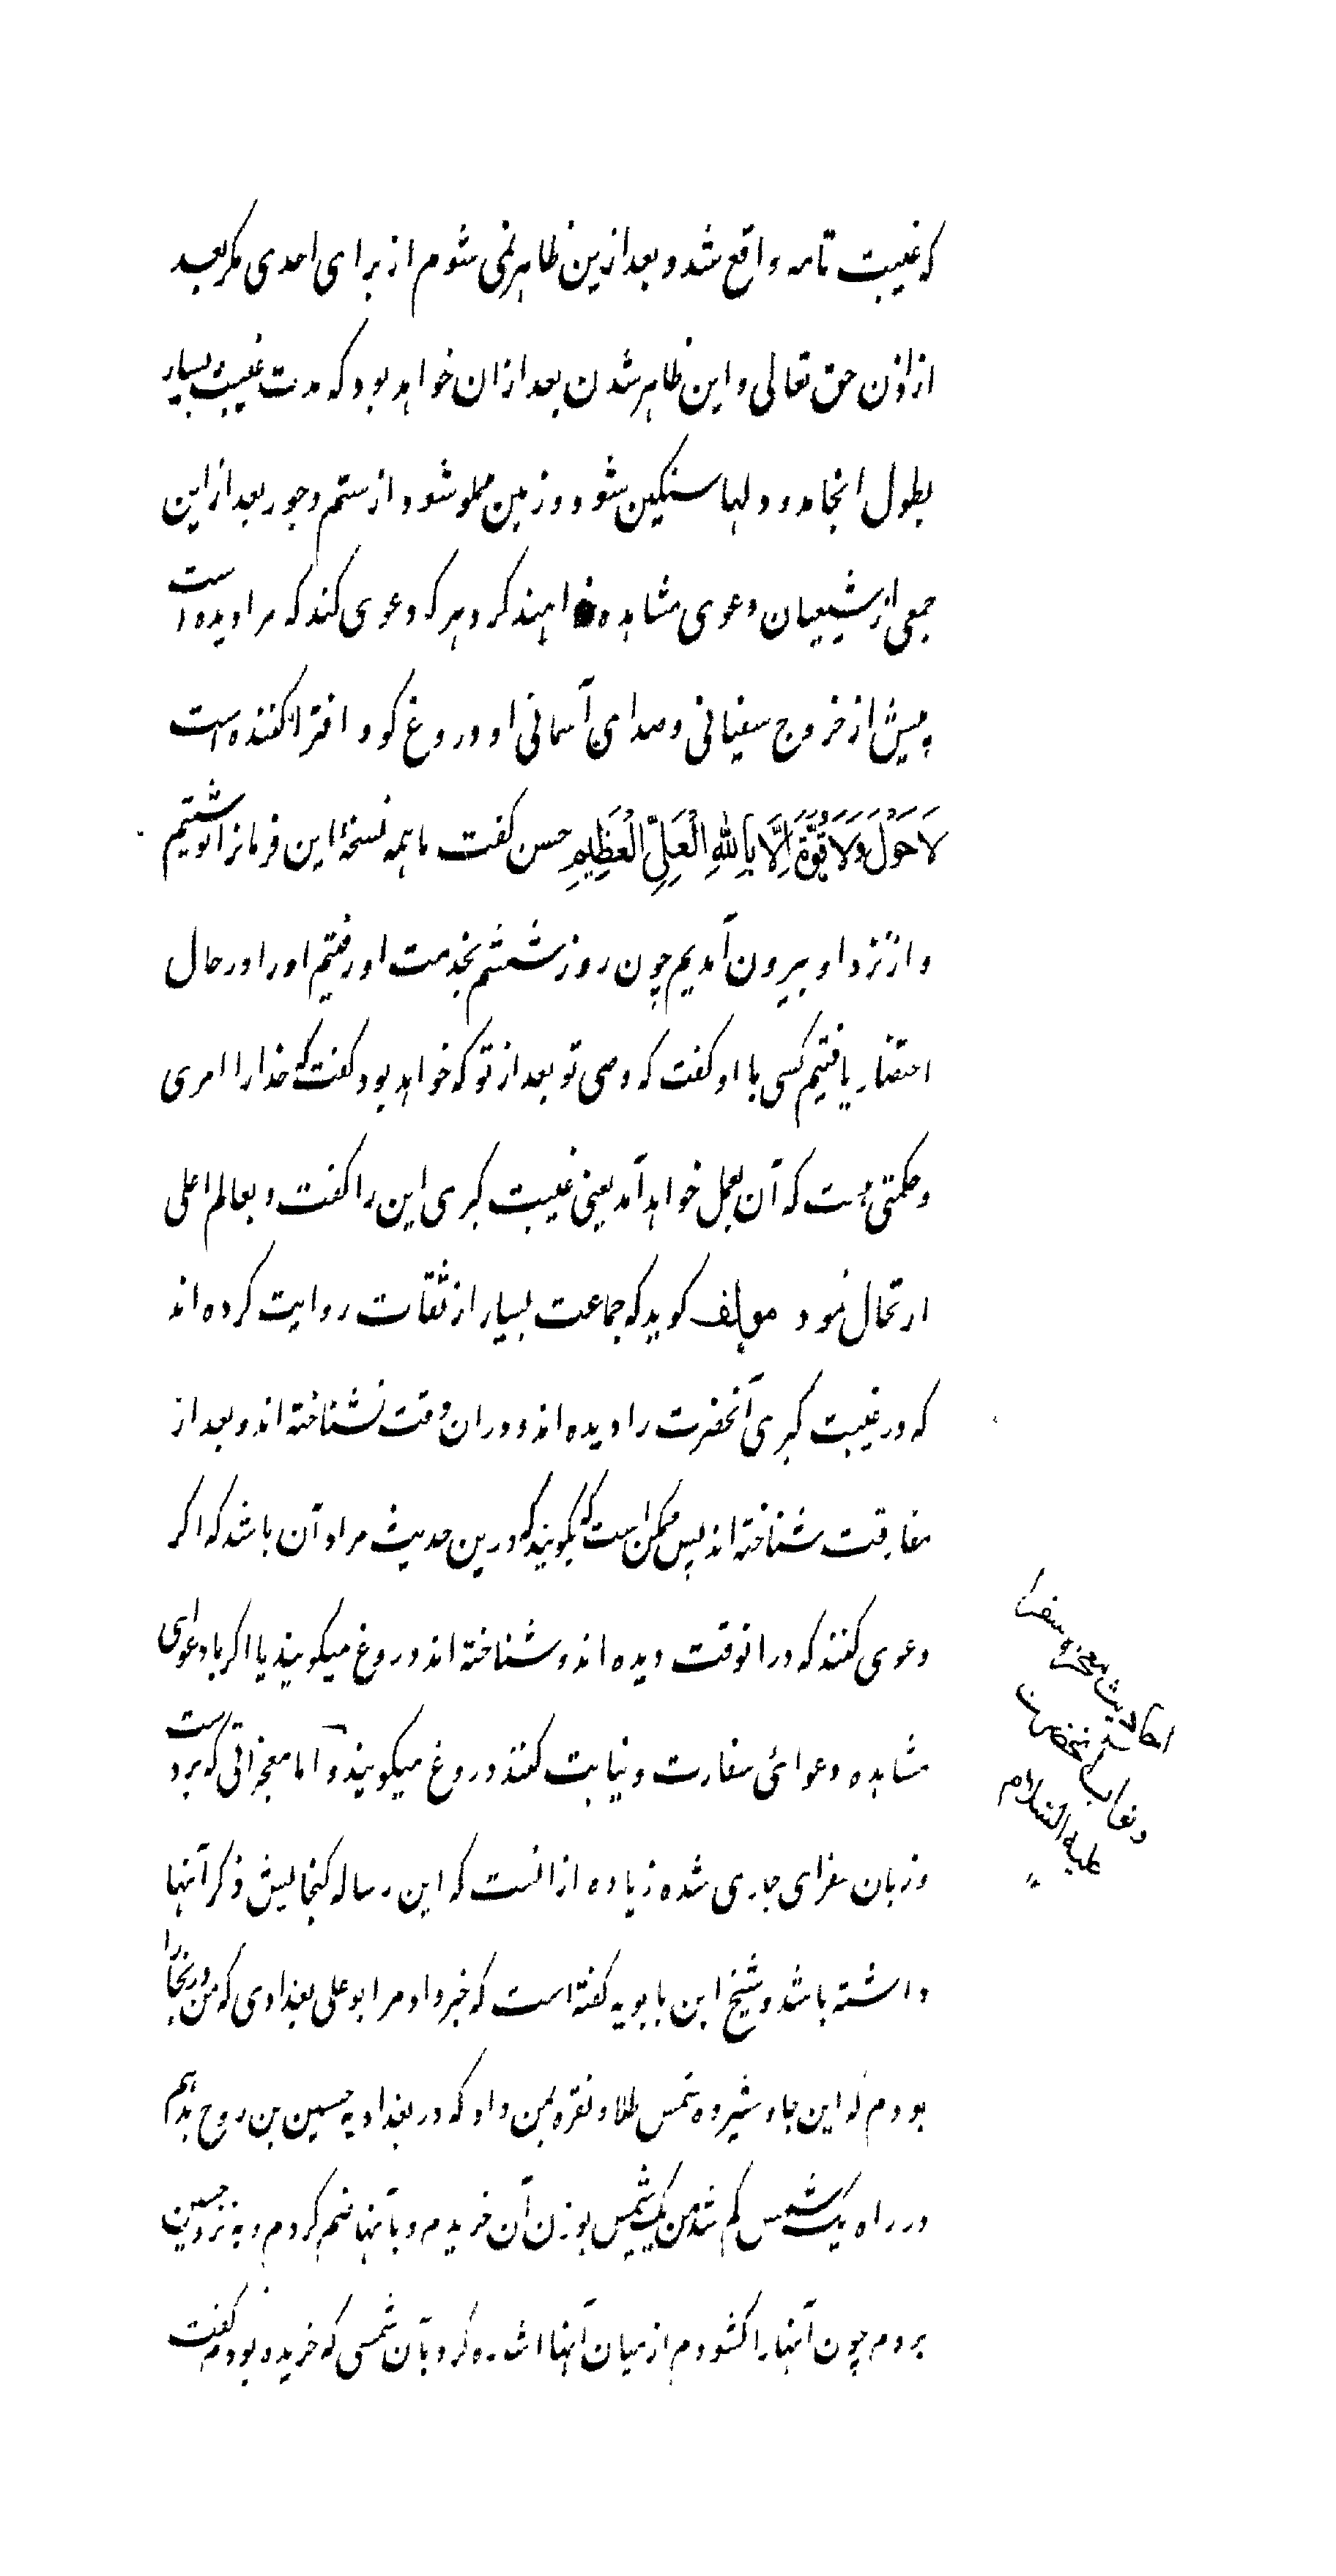 که غیبت تامه واقع شد و بعد ازین ظاهر نمی شوم از برای احدی مکر بعد
از اذن حق تعالی و این ظاهر شدن بعد از ان خواهد بود که مدت غیبت بسیار
بطول انجامد و دلها سنکین شود و زمین مملو شود از ستم و جور بعد از این
جمعی از شیعیان دعوی مشاهده خواهند کرد هر که دعوی کند که مرا دیده است
پیش از خروج سفیانی و صدای آسمانی او دروغ کو و افترا کننده است
لَا حَوْلَ وَلَا قُوَّةَ اِلَّا بِاللهِ الْعَلِيِّ الْعَظِيمِ حسن کفت ما همه نسخهٔ این فرمانرا نوشتیم
و از نزد او بیرون آمدیم چون روز ششم بخدمت او رفتیم او را در حال
احتضار یافتیم کسی با او کفت که وصی تو بعد از تو که خواهد بود کفت که خدا را امری
و حکمتی هست که آن بعمل خواهد آمد یعنی غیبت کبری این را کفت و بعالم اعلی
ارتحال نمود مولف کوید که جماعت بسیار از ثقات روایت کرده اند
که در غیبت کبری آنحضرت را دیده اند و در ان وقت نشناخته اند و بعد از
مفارقت شناخته اند پس ممکن است که بکویند که درین حدیث مراد آن باشد که اکر
دعوی کنند که در انوقت دیده اند و شناخته اند دروغ میکویند یا اکر با دعوای
مشاهده دعوائی سفارت و نیابت کنند دروغ میکویند و اما معجزاتی که بر دست
و زبان سفرای جاری شده زیاده از انست که این رساله کنجایش ذکر آنها
داشته باشد و شیخ ابن بابویه کفته است که خبر داد مرا بو علی بغدادی که من در بخارا
بودم که ابن جاوشیر ده شمس طلا و نقره بمن داد که در بغداد به حسین بن روح بدهم
در راه یک شمس کم شد من یک شمس بوزن آن خریدم و بآنها ضم کردم و به نزد حسین
بردم چون آنها را کشودم از میان آنها اشاره کرد بآن شمسی که خریده بودم کفت
احادیث معجزه سفرا
و نواب آنحضرت
علیه السلام